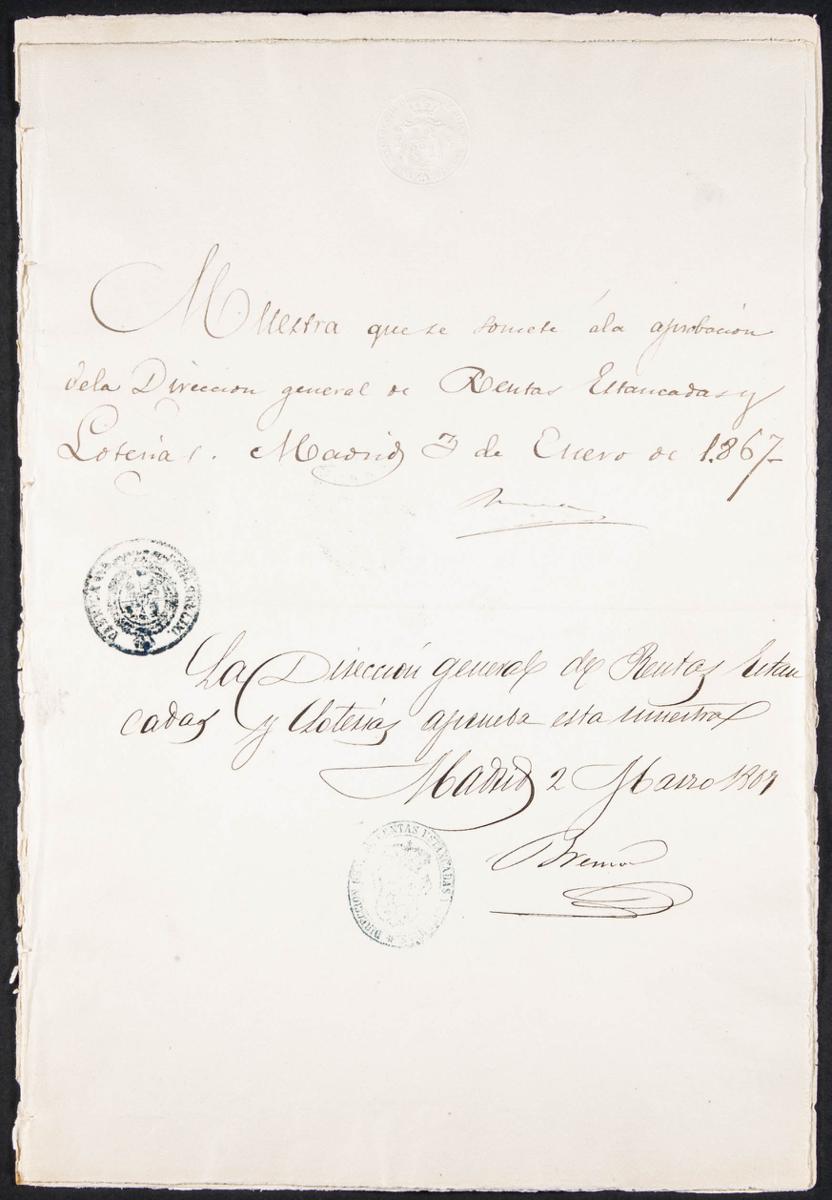 Muestra que se somete á la aprobación
de la Direccion general de Rentas Estancadas y
Loterias. Madrid 3 de Enero de 1.867-
La Dirección general de Rentas Estan
cadas y Loterias aprueba esta muestra
Madrid 2 Marzo 1867
Bremon
DIRECCION RENTAS ESTANCADAS